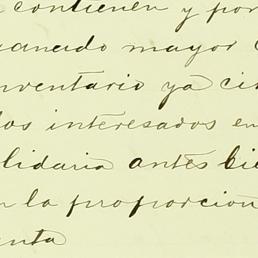 contienen y por
mayor
nventario ya ci
los interesados en
lidaria antes bie
n la proporcion
enta